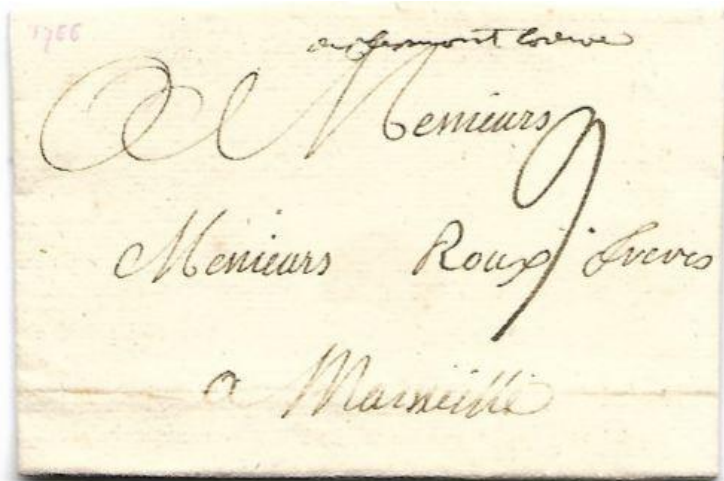 1766
de clermont Lodeve
A Messieurs
9
Messieurs Roux freres
a Marseille